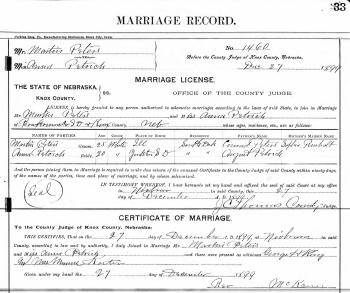 83
MARRIAGE RECORD.
Mr. Martin Peters
No. 1460
Before the County Judge of Knox County, Nebraska.
Miss Annie Petrick
Dec 27 1899
MARRIAGE LICENSE.
THE STATE OF NEBRASKA
KNOX COUNTY.
ss.
OFFICE OF THE COUNTY JUDGE
License is hereby granted to any person authorized to solemnize marriages according to the laws of said State, to join in Marriage
Mr. Martin Peters and Miss Annie Petrick
of
Knox County, Neb whose ages, residence, etc., are as follows:
NAMES OF PARTIES AGE COLOR PLACE OF BIRTH RESIDENCE FATHER'S NAME MOTHER'S MAIDEN NAME
Martin Peters 25 White Ill
Annie Petrick 20 " Yankton S D August Petrick
And the person joining them in Marriage is required to make due return of the annexed Certificate to the County Judge of said County within ninety
days of the names of the parties, time and place of marriage, and by whom solemnized.
IN TESTIMONY WHEREOF, I have hereunto set my hand and affixed the seal of said Court at my office
in Niobrara in said County, this 27
day of December A. D. 1899
Seal
County Judge
CERTIFICATE OF MARRIAGE.
To the County Judge of Knox County, Nebraska:
THIS CERTIFIES, That on the 27 day of December A. D. 1899, at Niobrara in said
County, according to law and by authority, I duly Joined in Marriage Mr. Martin Peters
and Miss Annie Petrick and there were present as witnesses George H
and Mrs
Given under my hand the 27 day of December 1899
Rev